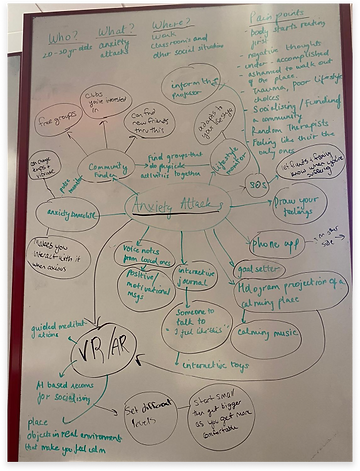 Who?
20-30 yr olds
What?
anxiety
attack
Where?
Work
Classrooms and
other social situation
Pain points
- body starts reacting
first
- negative thoughts
- under-accomplished
- ashamed to walk out
of the place
- Trauma, Poor lifestyle
choices
- Socialising / Finding
a community
- Random Therapists
- Feeling like their the
only ones
inform the
professor
adapts to
your
lifestyle
monitor
free groups
Clubs
you're
interested
in
Can find
new friends
thru this
Community
Finder
Find groups that
do physical
activities together
pulse
monitor
anxiety bracelet
Makes you
interact with it
when anxious
Anxiety Attacks
SOS
let friends & family
know when you're
suffering
Draw your
feelings
phone app
goal setter
Hologram projection of a
calming place
calming music
voice notes
from loved ones
positive/
motivational
msgs
interactive
journal
Someone to
talk to
"I feel like this"
interactive toys
guided meditat
ations
VR/AR
AI based rooms
for socialising
place
objects in real environment
that make you feel calm
Set different
levels
Start small
then get bigger
as you get more
comfortable